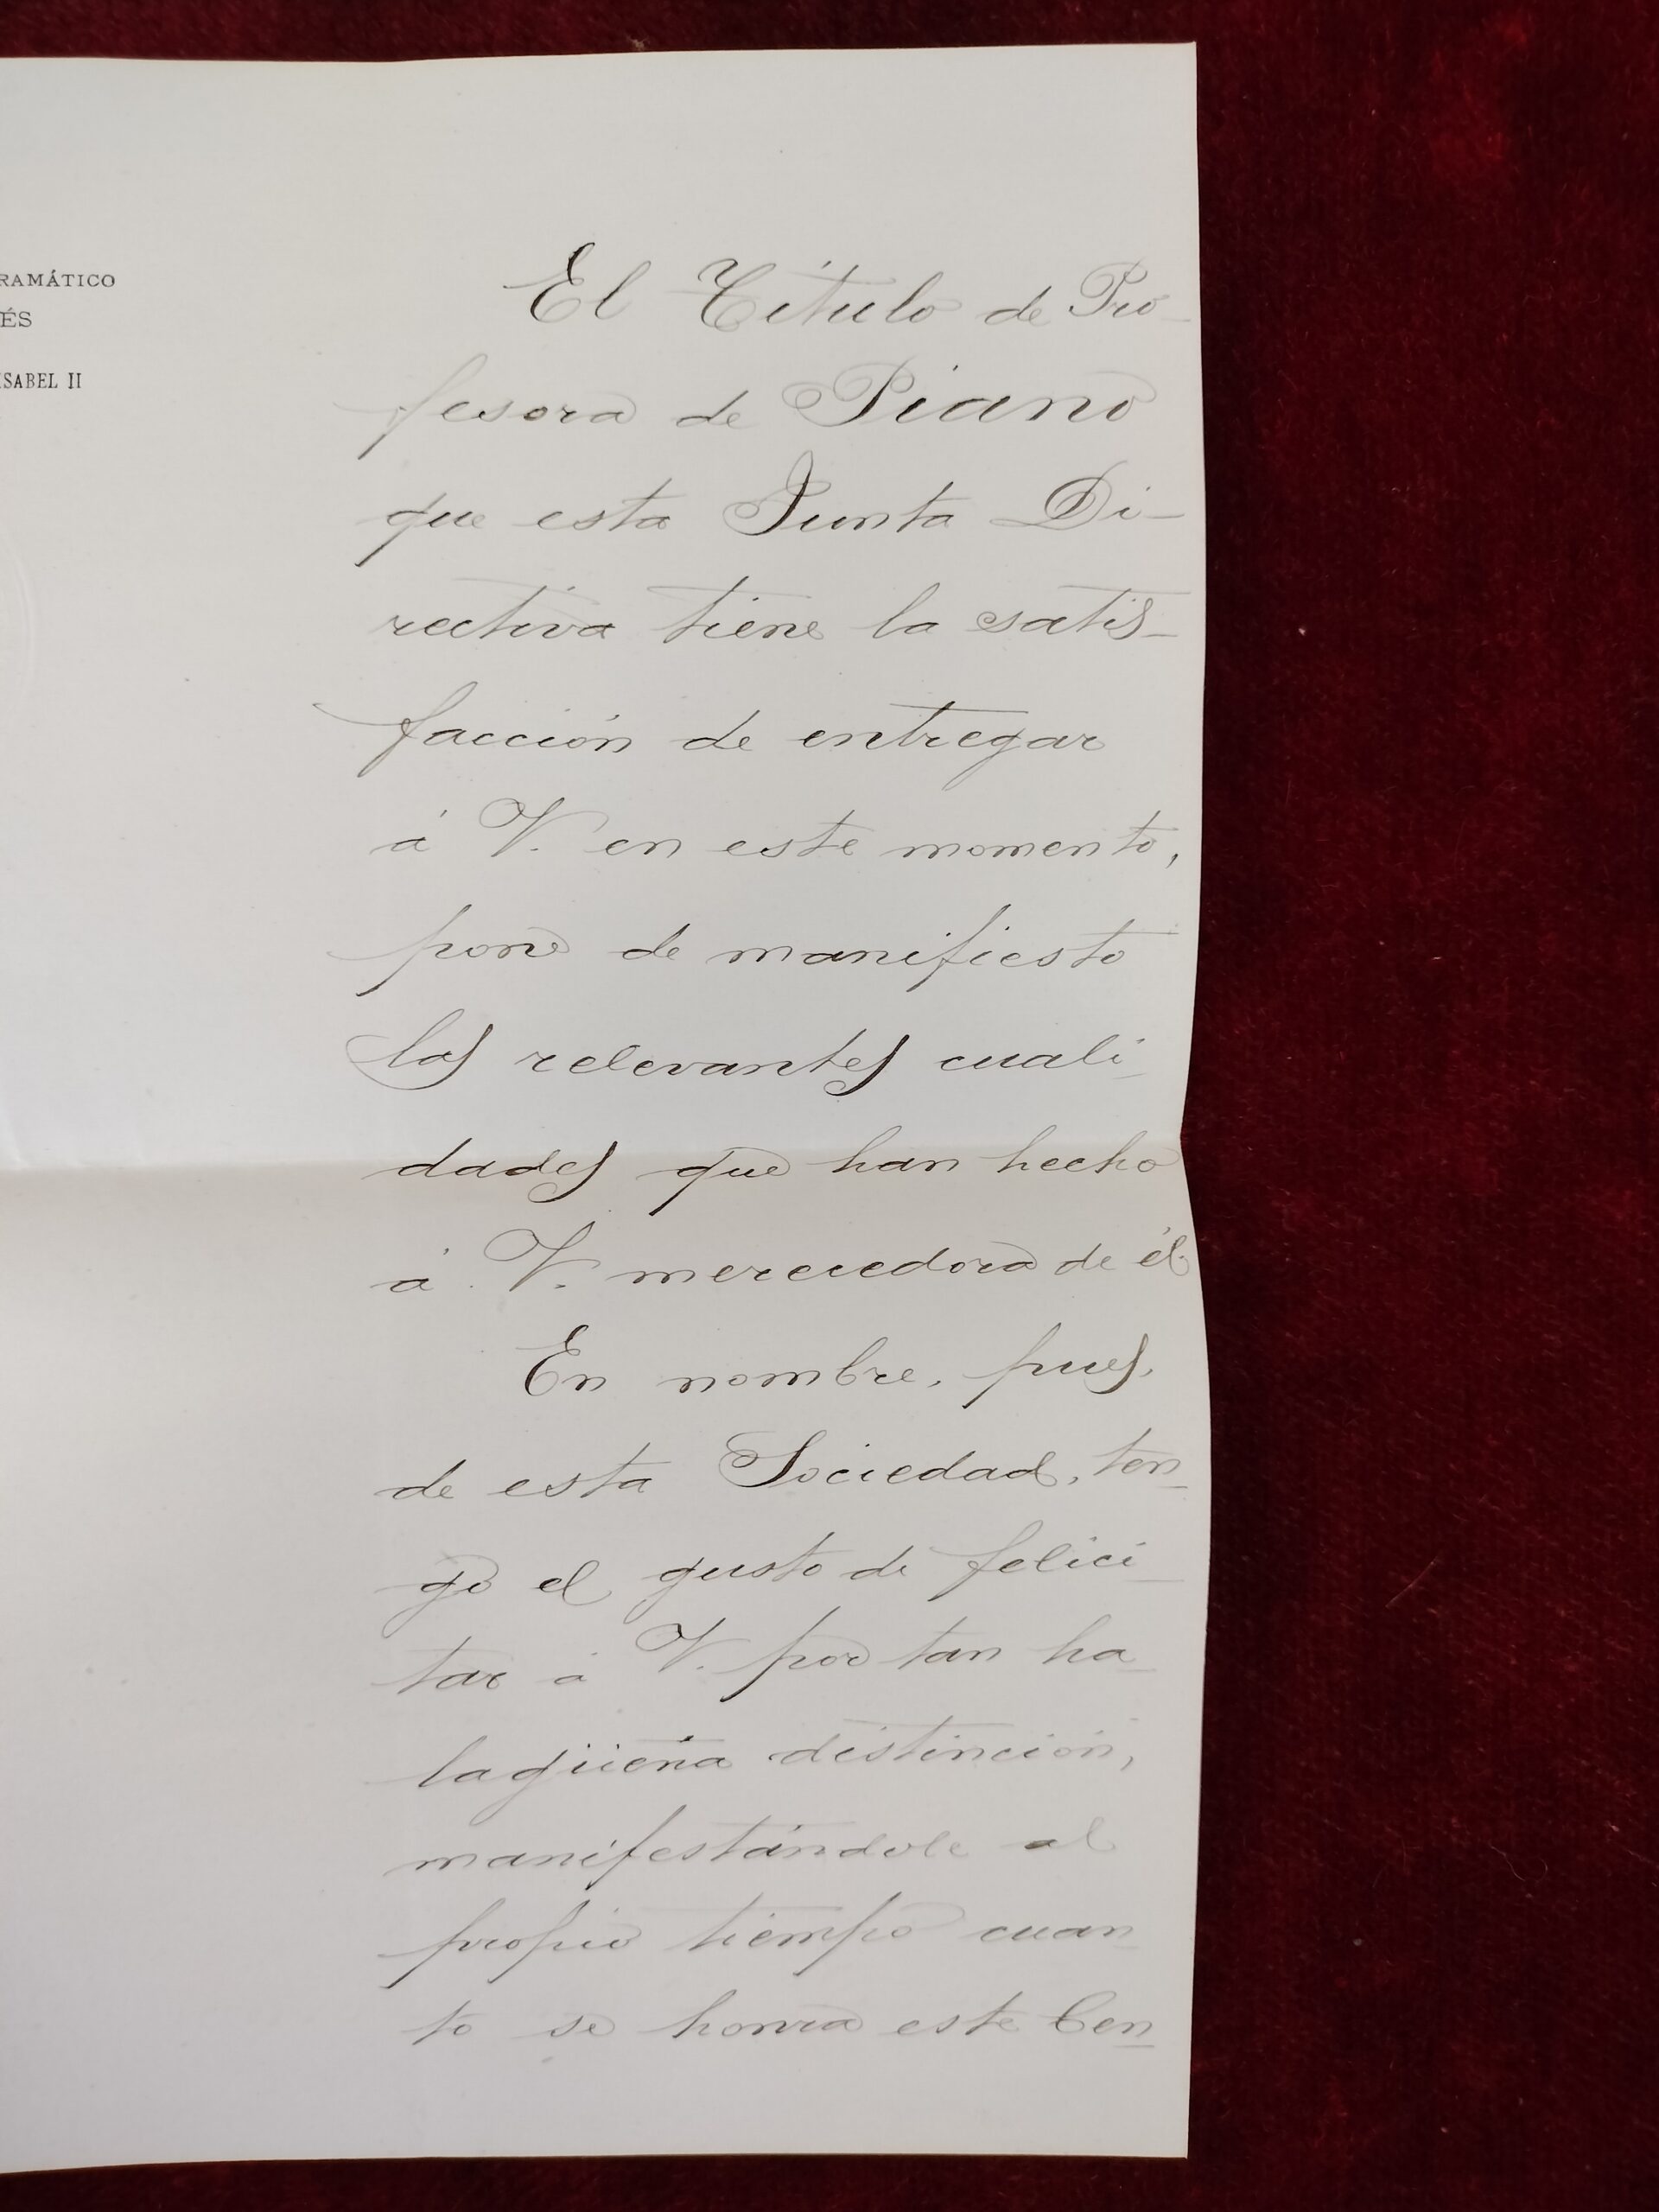 RAMÁTICO
ÉS
ISABEL II
El Título de Pro-
fesora de Piano
que esta Junta Di-
rectiva tiene la satis-
facción de entregar
á V. en este momento,
pone de manifiesto
las relevantes cuali-
dades que han hecho
á V. merecedora de él.
En nombre, pues,
de esta Sociedad, ten-
go el gusto de felici-
tar á V. por tan ha-
lagüeña distinción,
manifestándole al
propio tiempo cuan-
to se honra este Cen-